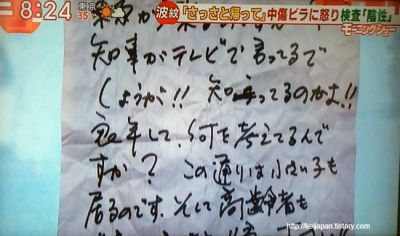 8:24
東京
35
波紋
「さっさと帰って」中傷ビラに怒り 検査「陰性」
モーニングショー
知事がテレビで言ってるで
しょうが!! 知ってるのかよ!!
良い年して、何を考えてるんで
すか? この通りは小さい子も
居るのです。そして高齢者も
http://keijapan.tistory.com